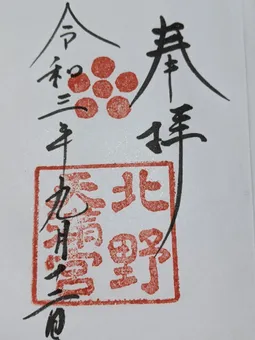 奉拝
北野
天満宮
令和三年九月十二日